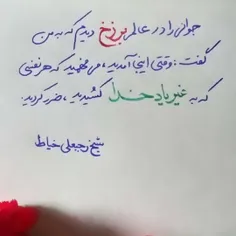 جوانی را در عالم برزخ دیدم که به من
گفت: وقتی اینجا آمدید، می‌فهمید که هر نفسی
که به غیر یاد خدا کشیدید، ضرر کردید.
شیخ رجبعلی خیاط